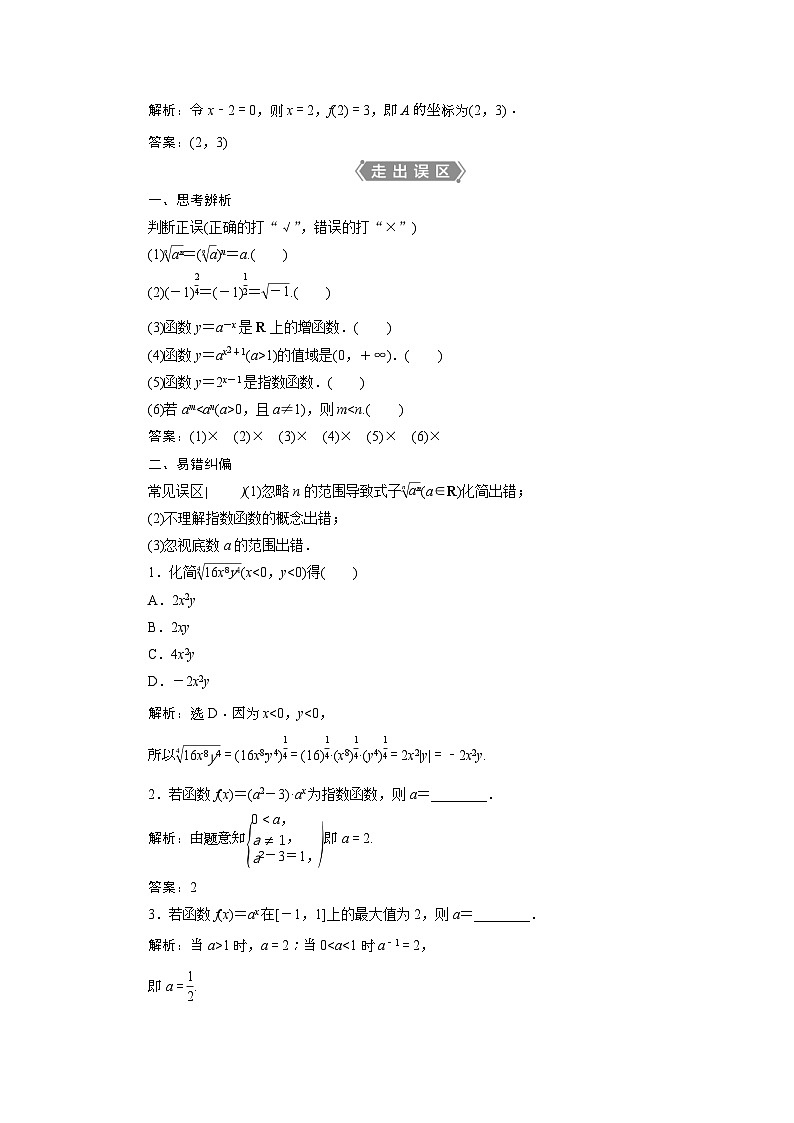 解析：令 x－2＝0，则 x＝2，f(2)＝3，即 A 的坐标为(2，3)．
答案：(2，3)
走出误区
一、思考辨析
判断正误(正确的打“√”，错误的打“×”)
(1)ⁿ√(aⁿ)＝(ⁿ√a)ⁿ＝a.(　　)
(2)(－1)^(2/4)＝(－1)^(1/2)＝√(－1).(　　)
(3)函数 y＝a^(－x) 是 R 上的增函数．(　　)
(4)函数 y＝a^(x²＋1)(a>1)的值域是(0，＋∞)．(　　)
(5)函数 y＝2^(x－1) 是指数函数．(　　)
(6)若 a^m<a^n(a>0，且 a≠1)，则 m<n.(　　)
答案：(1)×　(2)×　(3)×　(4)×　(5)×　(6)×
二、易错纠偏
常见误区|　　)(1)忽略 n 的范围导致式子ⁿ√(aⁿ)(a∈R)化简出错；
(2)不理解指数函数的概念出错；
(3)忽视底数 a 的范围出错．
1．化简⁴√(16x⁸y⁴)(x<0，y<0)得(　　)
A．2x²y
B．2xy
C．4x²y
D．－2x²y
解析：选 D．因为 x<0，y<0，
所以⁴√(16x⁸y⁴)＝(16x⁸·y⁴)^(1/4)＝(16)^(1/4)·(x⁸)^(1/4)·(y⁴)^(1/4)＝2x²|y|＝－2x²y.
2．若函数 f(x)＝(a²－3)·a^x 为指数函数，则 a＝________．
解析：由题意知{0＜a，a≠1，a²－3＝1，)即 a＝2.
答案：2
3．若函数 f(x)＝a^x 在[－1，1]上的最大值为 2，则 a＝________．
解析：当 a>1 时，a＝2；当 0<a<1 时 a^(－1)＝2，
即 a＝1/2.